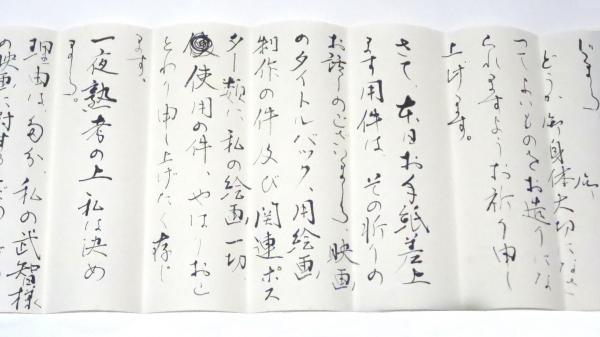 じまする
どうか御身体大切になさ
つてよいものをお造りにな
られますようお祈り申し
上げます。
さて、本日お手紙差上
ます用件は、その折りの
お話しのございました、映画
のタイトルバック用絵画
制作の件及び関連ポス
ター類に私の絵画一切
使用の件、やはりおこ
とわり申し上げたく存じ
ます。
一夜熟考の上私は決め
ました。
理由は、多分、私の武智様
の映画に対する